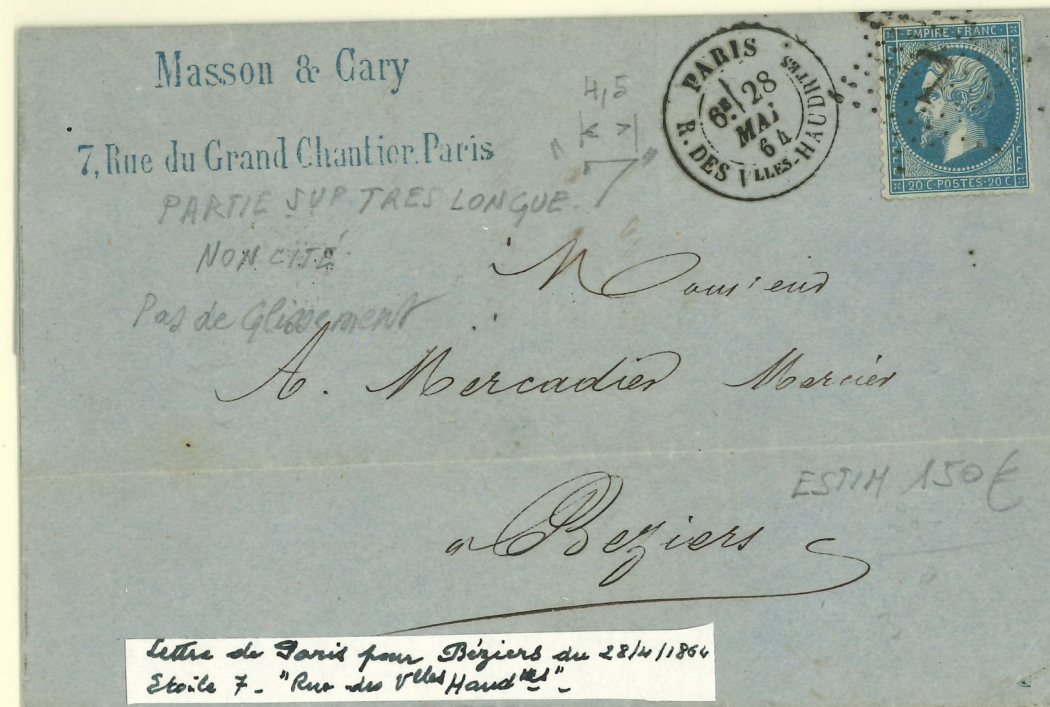 Masson & Cary
7, Rue du Grand Chantier. Paris
PARIS
6E 28
MAI
64
R. DES VLLES-HAUDRTES
EMPIRE·FRANC
20 C·POSTES·20 C
7
4,5
"7"
PARTIE SUP TRES LONGUE.
NON CITÉ
Pas de Glissement
Monsieur
A. Mercadier Mercier
a Beziers
ESTIM 150€
Lettre de Paris pour Béziers du 28/4/1864
Etoile 7 - "Rue des Vlles Haudtes" -